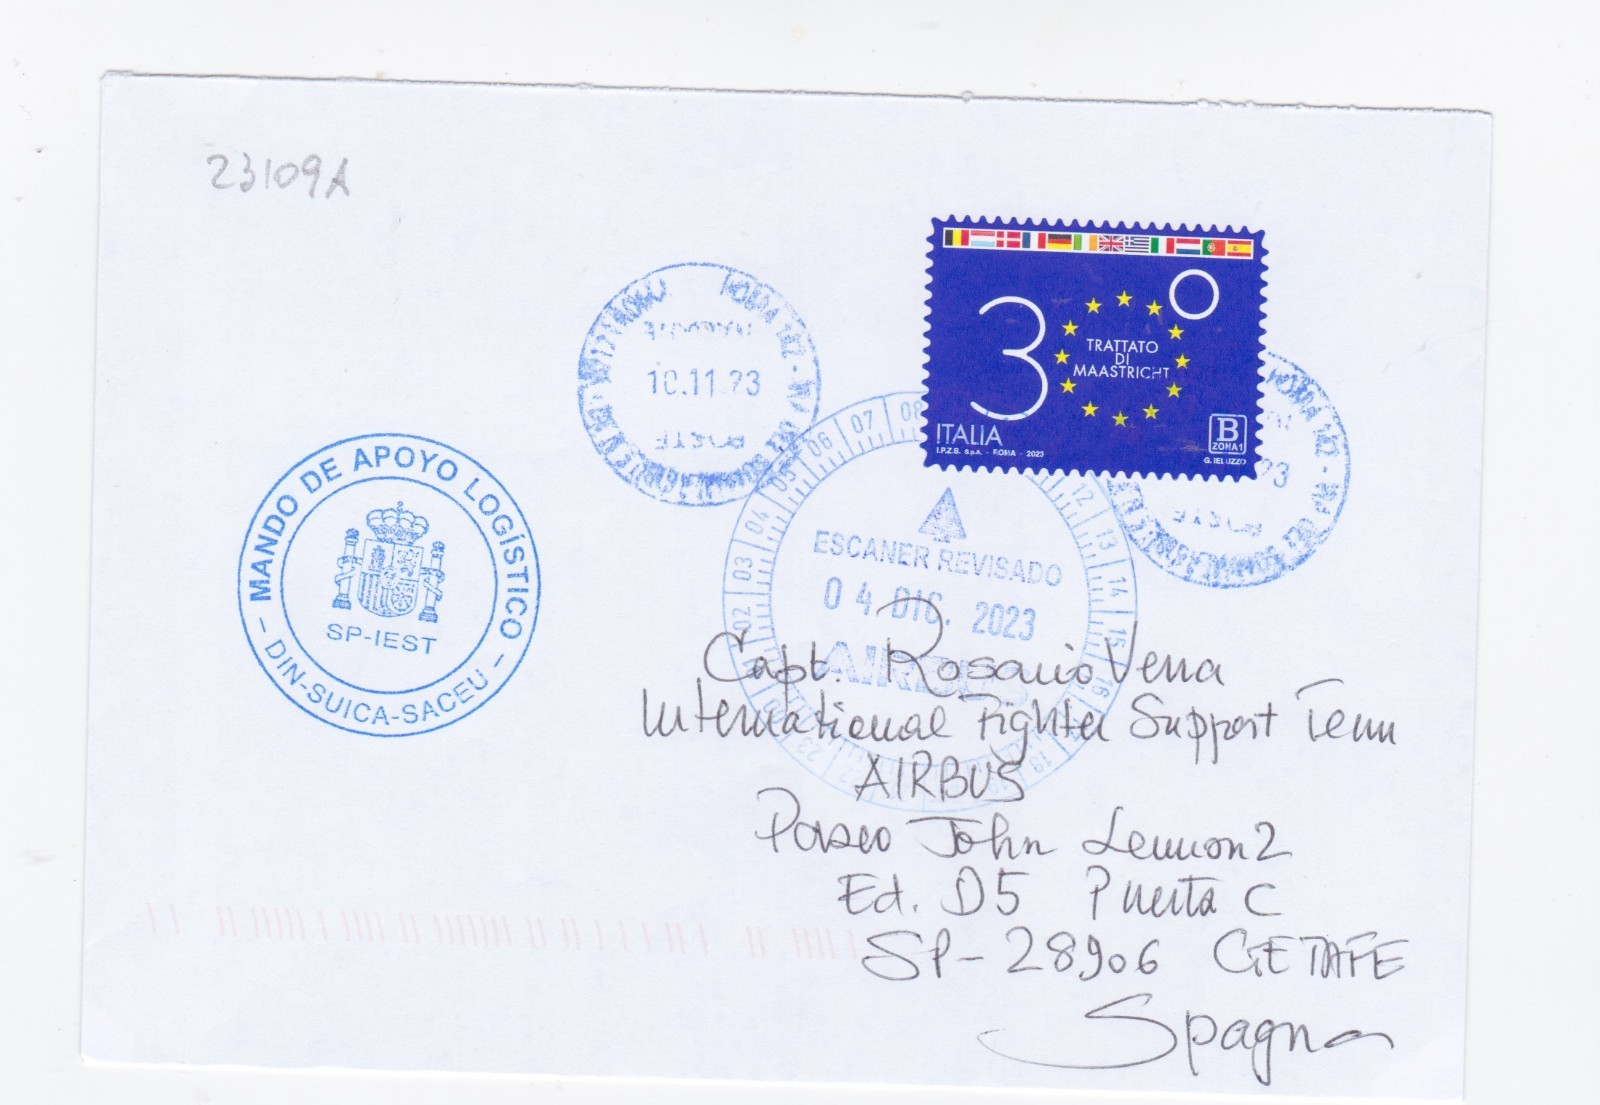 23109A
10.11.23
POSTE
3 0
TRATTATO
DI
MAASTRICHT
ITALIA
I.P.Z.S. S.p.A. - ROMA - 2023
B
ZONA 1
G. IELUZZO
23
MANDO DE APOYO LOGÍSTICO
SP-IEST
- DIN-SUICA-SACEU -
02 03 04 05 06 07 08 12 13 14 15 16
ESCANER REVISADO
04 DIC. 2023
AIRBUS
Capt. Rosario Verra
International Fighter Support Team
AIRBUS
Paseo John Lennon 2
Ed. D5 Puerta C
SP-28906 GETAFE
Spagna